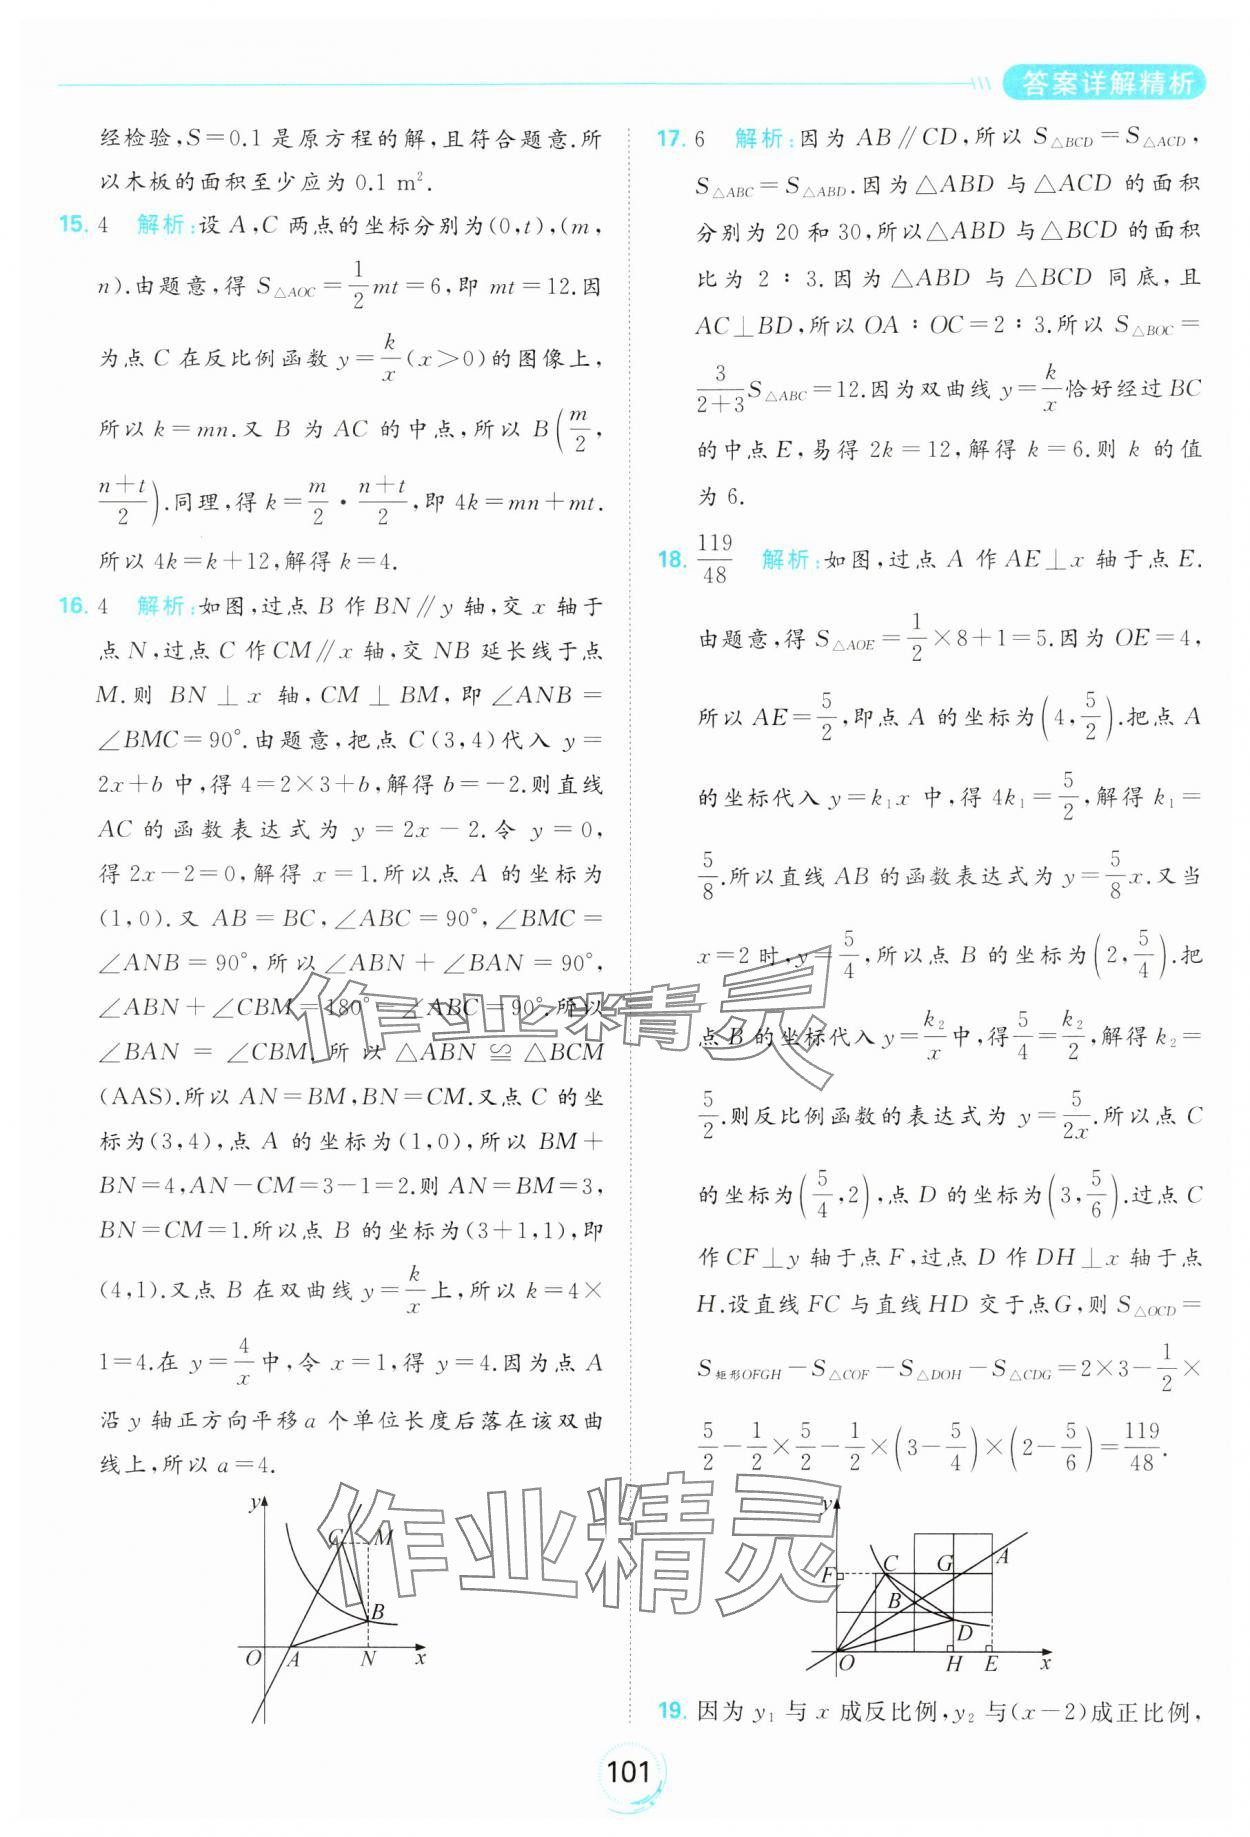 答案详解精析
经检验,S=0.1 是原方程的解,且符合题意.所
以木板的面积至少应为 0.1 m².
15. 4 解析:设 A,C 两点的坐标分别为(0,t),(m,
n).由题意,得 S△AOC=1/2mt=6,即 mt=12.因
为点 C 在反比例函数 y=k/x(x>0)的图像上,
所以 k=mn.又 B 为 AC 的中点,所以 B(m/2,
(n+t)/2).同理,得 k=m/2·(n+t)/2,即 4k=mn+mt.
所以 4k=k+12,解得 k=4.
16. 4 解析:如图,过点 B 作 BN∥y 轴,交 x 轴于
点 N,过点 C 作 CM∥x 轴,交 NB 延长线于点
M.则 BN⊥x 轴,CM⊥BM,即∠ANB=
∠BMC=90°.由题意,把点 C(3,4)代入 y=
2x+b 中,得 4=2×3+b,解得 b=-2.则直线
AC 的函数表达式为 y=2x-2.令 y=0,
得 2x-2=0,解得 x=1.所以点 A 的坐标为
(1,0).又 AB=BC,∠ABC=90°,∠BMC=
∠ANB=90°,所以∠ABN+∠BAN=90°,
∠ABN+∠CBM=180°-∠ABC=90°.所以
∠BAN=∠CBM.所以△ABN≌△BCM
(AAS).所以 AN=BM,BN=CM.又点 C 的坐
标为(3,4),点 A 的坐标为(1,0),所以 BM+
BN=4,AN-CM=3-1=2.则 AN=BM=3,
BN=CM=1.所以点 B 的坐标为(3+1,1),即
(4,1).又点 B 在双曲线 y=k/x上,所以 k=4×
1=4.在 y=4/x中,令 x=1,得 y=4.因为点 A
沿 y 轴正方向平移 a 个单位长度后落在该双曲
线上,所以 a=4.
y
C
M
B
O
A
N
x
17. 6 解析:因为 AB∥CD,所以 S△BCD=S△ACD,
S△ABC=S△ABD.因为△ABD 与△ACD 的面积
分别为 20 和 30,所以△ABD 与△BCD 的面积
比为 2∶3.因为△ABD 与△BCD 同底,且
AC⊥BD,所以 OA∶OC=2∶3.所以 S△BOC=
3/(2+3)S△ABC=12.因为双曲线 y=k/x恰好经过 BC
的中点 E,易得 2k=12,解得 k=6.则 k 的值
为 6.
18. 119/48 解析:如图,过点 A 作 AE⊥x 轴于点 E.
由题意,得 S△AOE=1/2×8+1=5.因为 OE=4,
所以 AE=5/2,即点 A 的坐标为(4,5/2).把点 A
的坐标代入 y=k₁x 中,得 4k₁=5/2,解得 k₁=
5/8.所以直线 AB 的函数表达式为 y=5/8x.又当
x=2 时,y=5/4,所以点 B 的坐标为(2,5/4).把
点 B 的坐标代入 y=k₂/x中,得5/4=k₂/2,解得 k₂=
5/2.则反比例函数的表达式为 y=5/2x.所以点 C
的坐标为(5/4,2),点 D 的坐标为(3,5/6).过点 C
作 CF⊥y 轴于点 F,过点 D 作 DH⊥x 轴于点
H.设直线 FC 与直线 HD 交于点 G,则 S△OCD=
S矩形OFGH-S△COF-S△DOH-S△CDG=2×3-1/2×
5/2-1/2×5/2-1/2×(3-5/4)×(2-5/6)=119/48.
y
F
C
G
A
B
D
O
H
E
x
19. 因为 y₁ 与 x 成反比例,y₂ 与(x-2)成正比例,
作业精灵
作业精灵
101